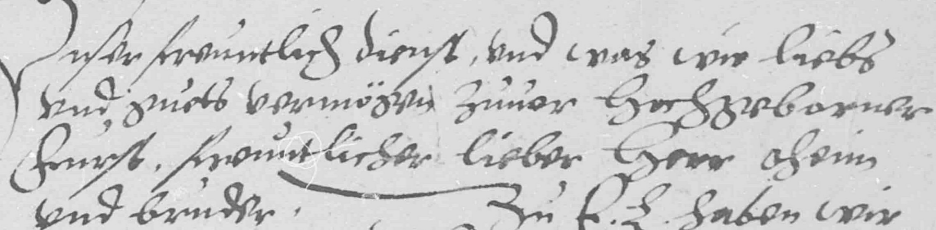 Unser freuntlich dienst, vnd was wir liebs
vnd guets vermögen zuuor Hochgeborner
Furst, freuntlicher lieber Herr oheim
vnd bruder. Zu E. L. haben wir